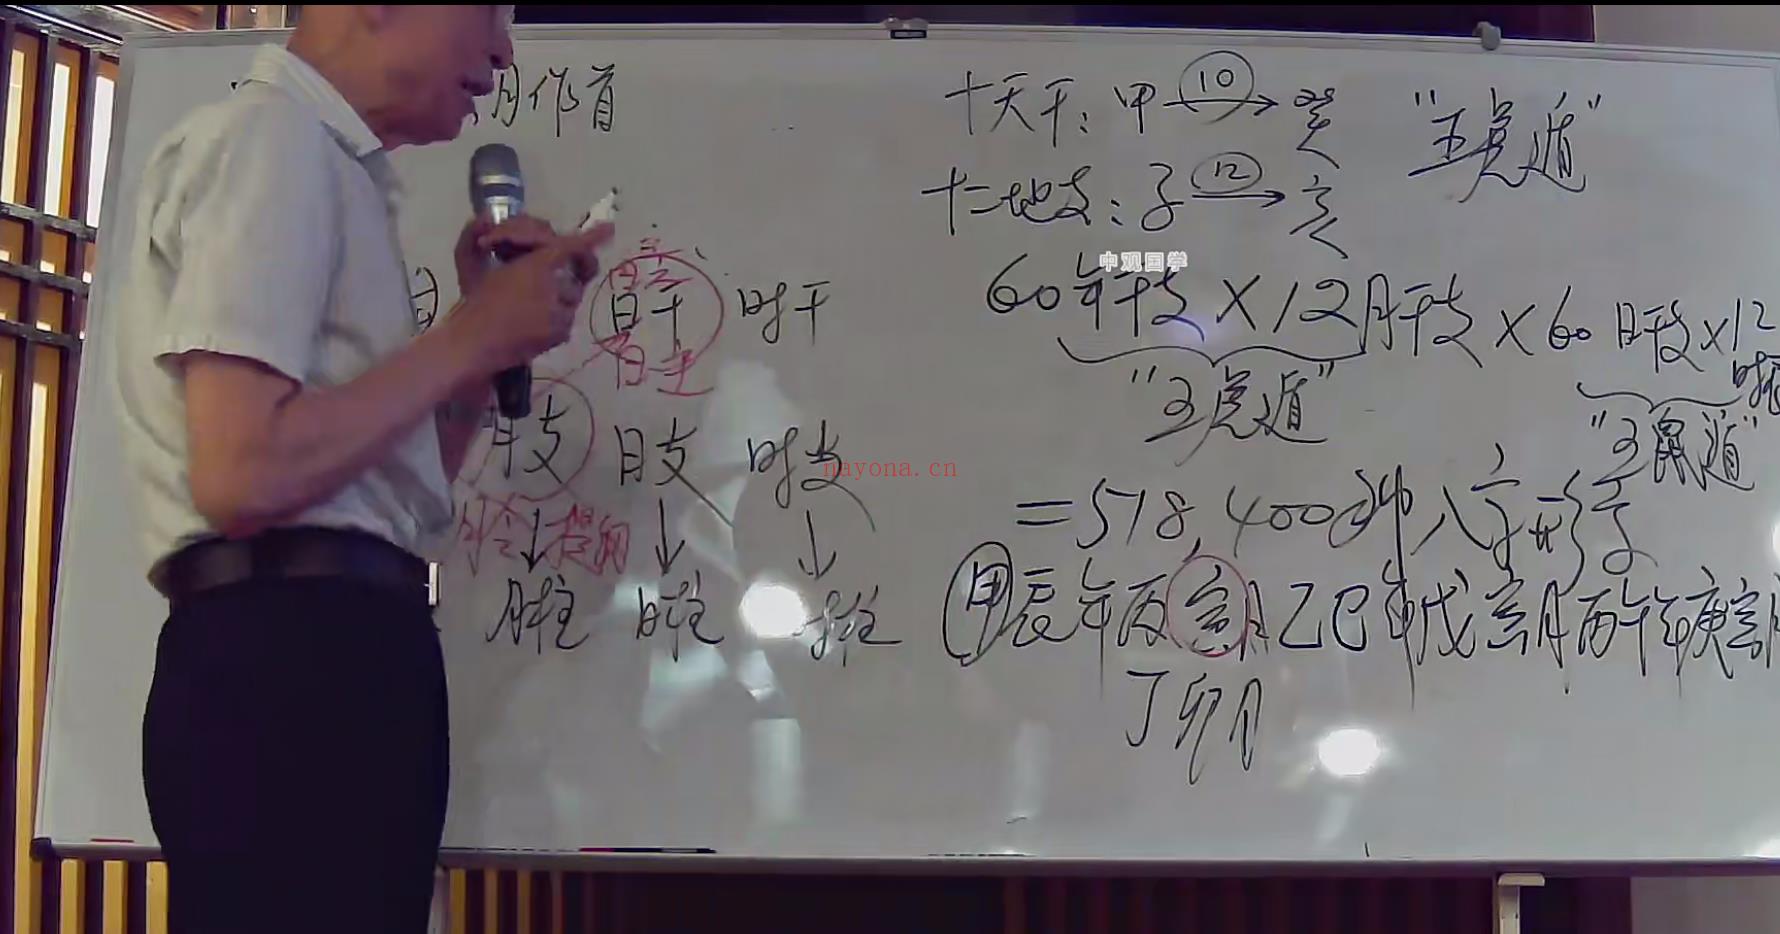 月作首
十天干：甲 10 → 癸
"五虎遁"
十二地支：子 12 → 亥
中观国学
60年干支×12月干支×60日干支×12时
"五虎遁"
"五鼠遁"
=518,400种八字形式
日主
日干
时干
月支
日支
时支
nayona.cn
月令
提纲
月柱
日柱
甲辰年丙寅月乙巳年戊寅月丙午年庚寅月
丁卯月